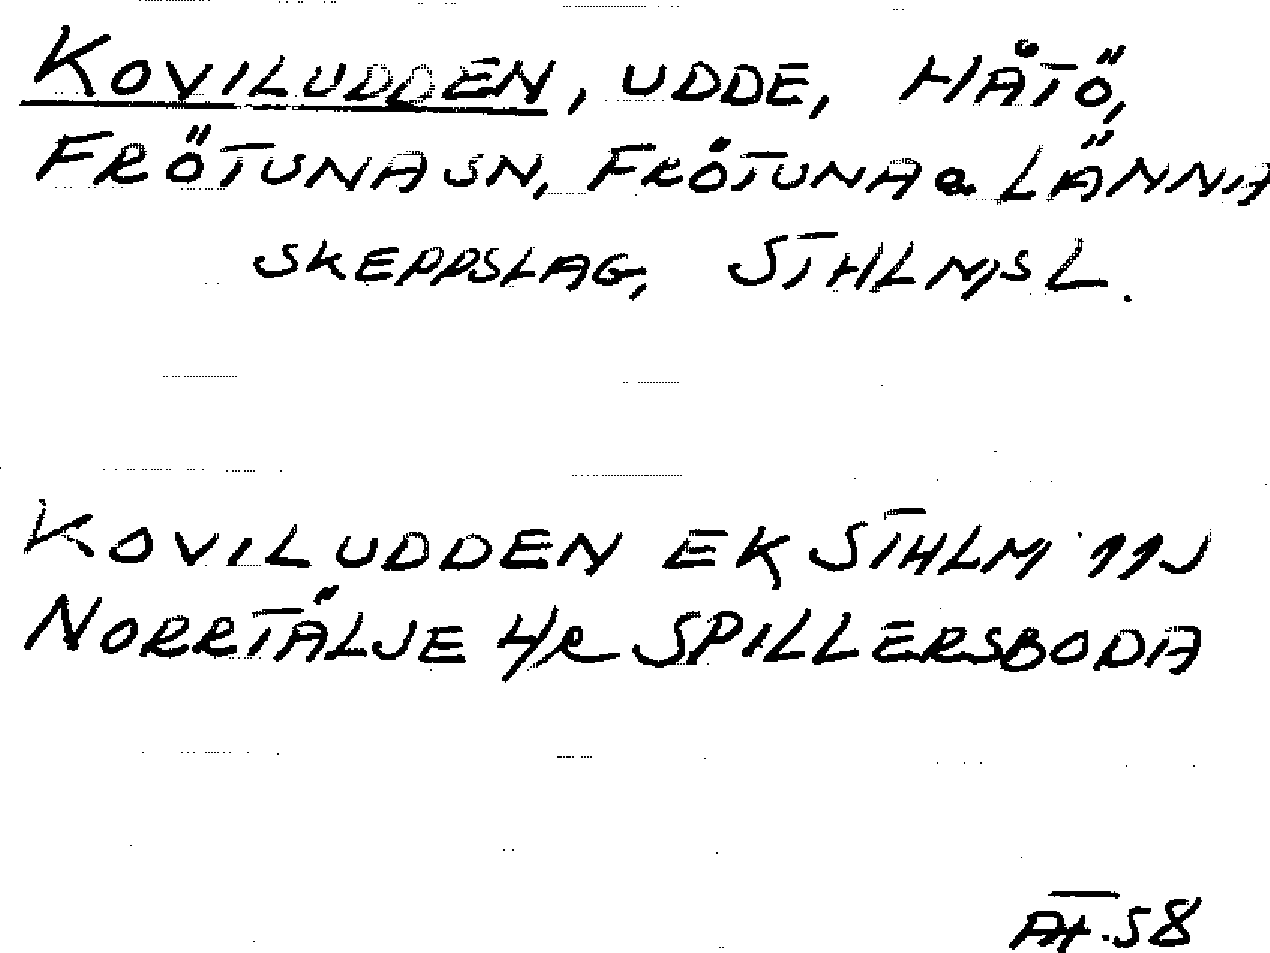 KOVILUDDEN, UDDE, HÅTÖ,
FRÖTUNA SN, FRÖTUNA & LÄNNA
SKEPPSLAG, STHLMS L.
KOVILUDDEN EK STHLM 11J
NORRTÄLJE 4/R SPILLERSBODA
AT.58